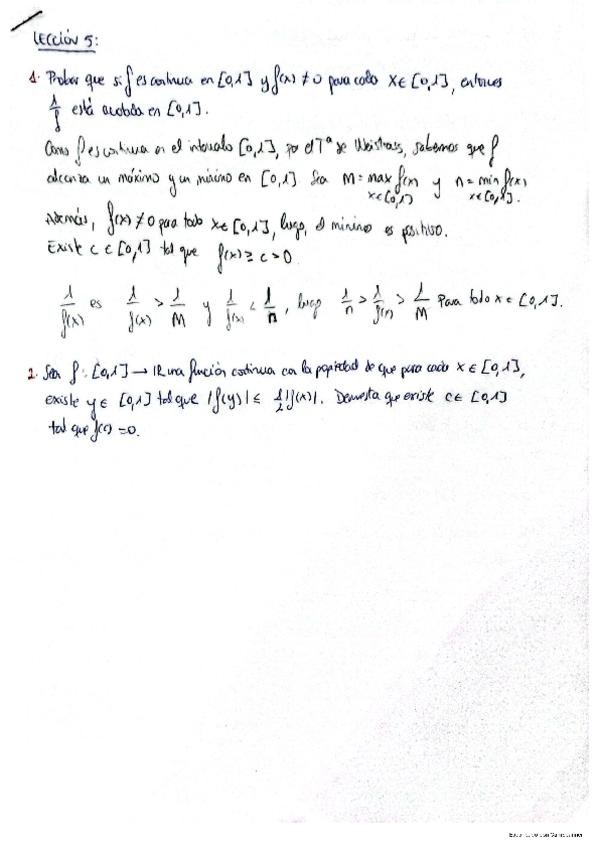 LECCIÓN 5:
1. Probar que si f es continua en [0,1] y f(x) ≠ 0 para cada x ∈ [0,1], entonces
1/f está acotada en [0,1].
Como f es continua en el intervalo [0,1], por el Tª de Weistrass, sabemos que f
alcanza un máximo y un mínimo en [0,1] Sea M = max f(x) y n = min f(x)
x ∈ [0,1] x ∈ [0,1].
Además, f(x) ≠ 0 para todo x ∈ [0,1], luego, el mínimo es positivo.
Existe c ∈ [0,1] tal que f(x) ≥ c > 0
1/f(x) es 1/f(x) > 1/M y 1/f(x) < 1/n, luego 1/n > 1/f(x) > 1/M para todo x ∈ [0,1].
2. Sea f: [0,1] → IR una función continua con la propiedad de que para cada x ∈ [0,1],
existe y ∈ [0,1] tal que |f(y)| ≤ 1/2 |f(x)|. Demuestra que existe c ∈ [0,1]
tal que f(c) = 0.